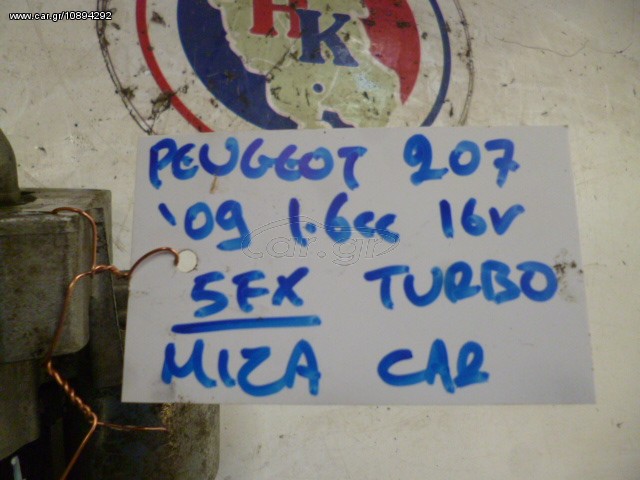 www.car.gr/10894292
HK
PEUGEOT 207
'09 1.6cc 16v
car.gr
5FX TURBO
MIZA CAR